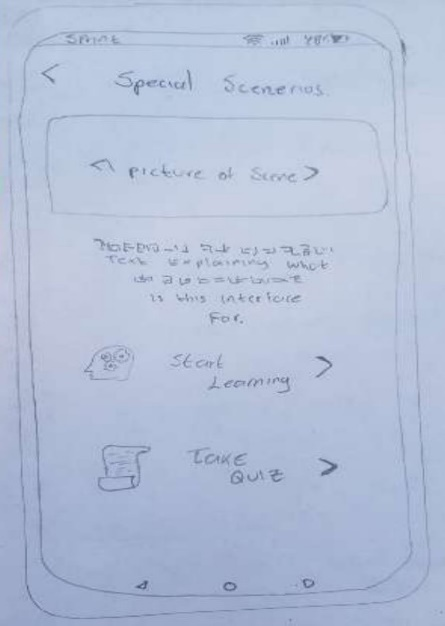 Special Scenerios.
< picture of Scene >
Text Explaining what
is this interface
For.
Start
Learning >
Take
Quiz >